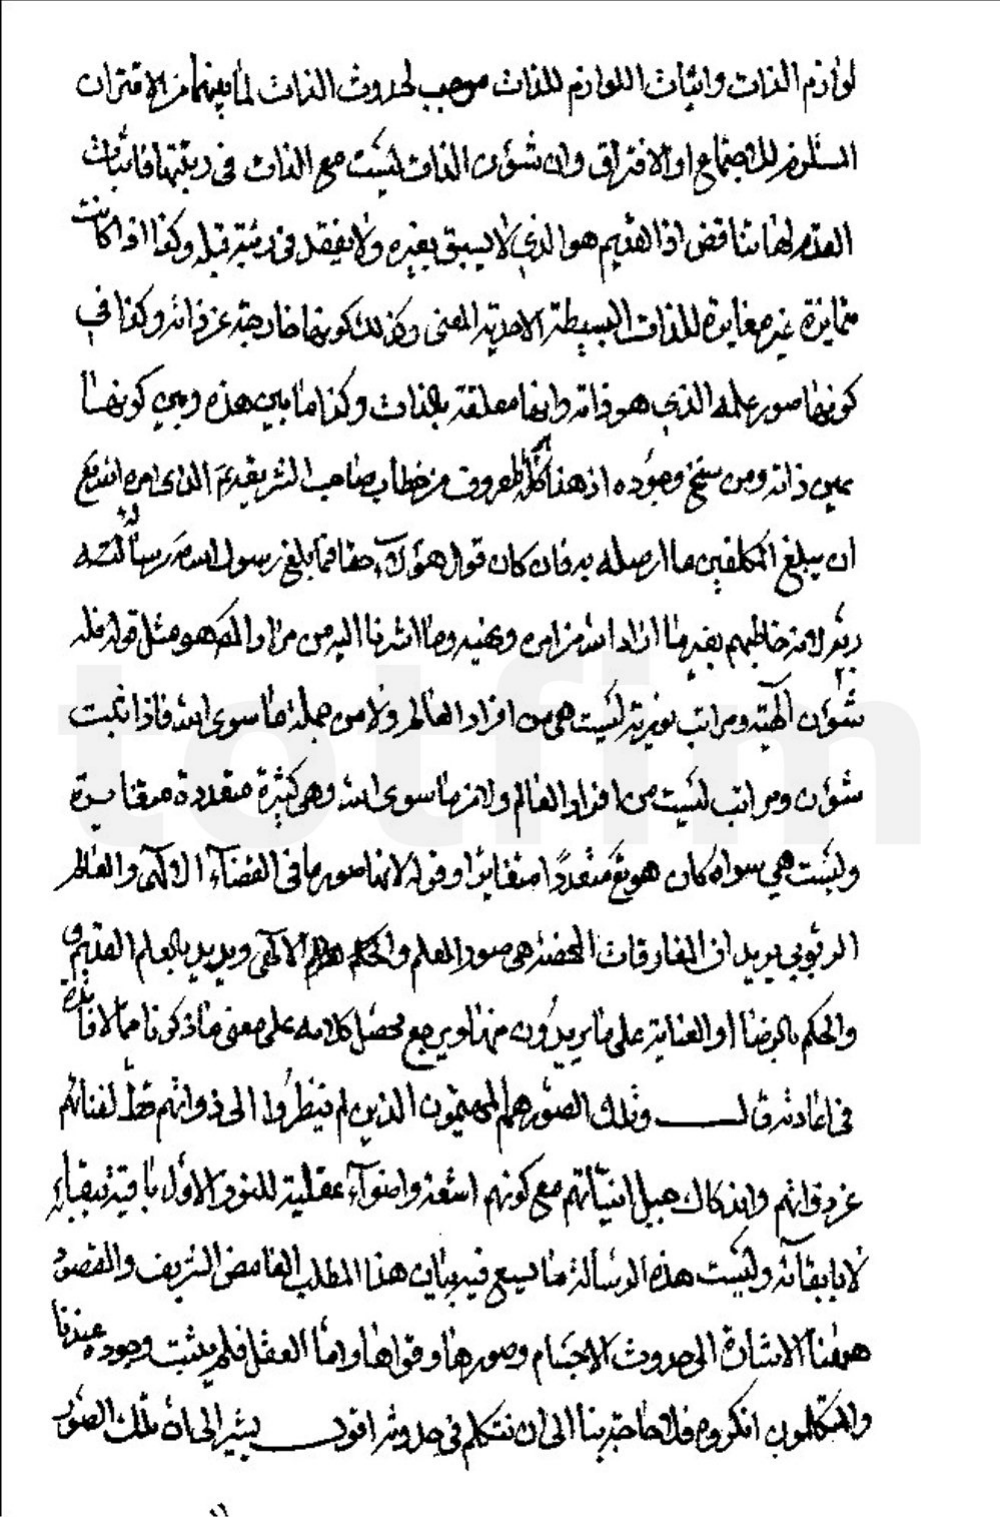 لوازم الذات واثبات اللوازم للذات موجب لحدوث الذات لما بينهما من الاقتران
المستلزم للاجتماع او الافتراق وان شؤن الذات ليست مع الذات فى رتبتها فاثبات
القدم لها تناقض اذ القديم هو الذي لا يسبق بغيره ولا يفقد فى رتبة قبله وكذا اذا كانت
متمايزة غير مغايرة للذات البسيطة الاحدية المعنى وكذلك كونها خارجة عن ذاته وكذا في
كونها صور علمه الذي هو ذاته وانها معلقة بالذات وكذا ما بين هذه وبين كونها
عين ذاته ومن سنخ وجوده اذ هذا كله غير معروف من خطاب صاحب الشريعة الذى امره الله تع
ان يبلغ المكلفين ما ارسله به فان كان قول هؤلاء حقا فما بلغ رسول الله رسالته
لانه خاطبهم بغير ما اراد الله من امره ونهيه وما اشرنا اليه من مراد المص هو مثل قوله فله
شؤن الهية ومراتب نورية ليست هى من افراد العالم ولا من جملة ما سوى الله فاذا ثبت
شؤن ومراتب ليست من افراد العالم ولا من ما سوى الله وهى كثيرة متعددة متغايرة
وليست هي سواه كان هو تع متعددًا متغايرا وقوله لانها صور ما فى القضآء الالهى والعالم
الربوبي يريد ان المفارقات المحضة هى صور العلم والحكم الالهى ويريد بالعلم القديم
والحكم بالرضا او العناية على ما يريدون منها ويرجع محصل كلامه على معنى ما ذكرنا مما لا فائدة
فى اعادته قال وتلك الصور هم المهيمون الذين لم ينظروا الى ذواتهم قط لفنائهم
عن ذواتهم واندكاك جبل انياتهم مع كونهم اشعة واضوآء عقلية للنور الاول باقية ببقائه
لا بابقائه وليست هذه الرسالة مما يسع فيه بيان هذا المطلب الغامض الشريف والمقصود
ههنا الاشارة الى حدوث الاجسام وصورها وقواها واما العقل فلم يثبت وجوده عندنا
والمتكلمون انكروه فلا حاجة بنا الى ان نتكلم فى حدوثه اقول يشير الى ان تلك الصور
totfim